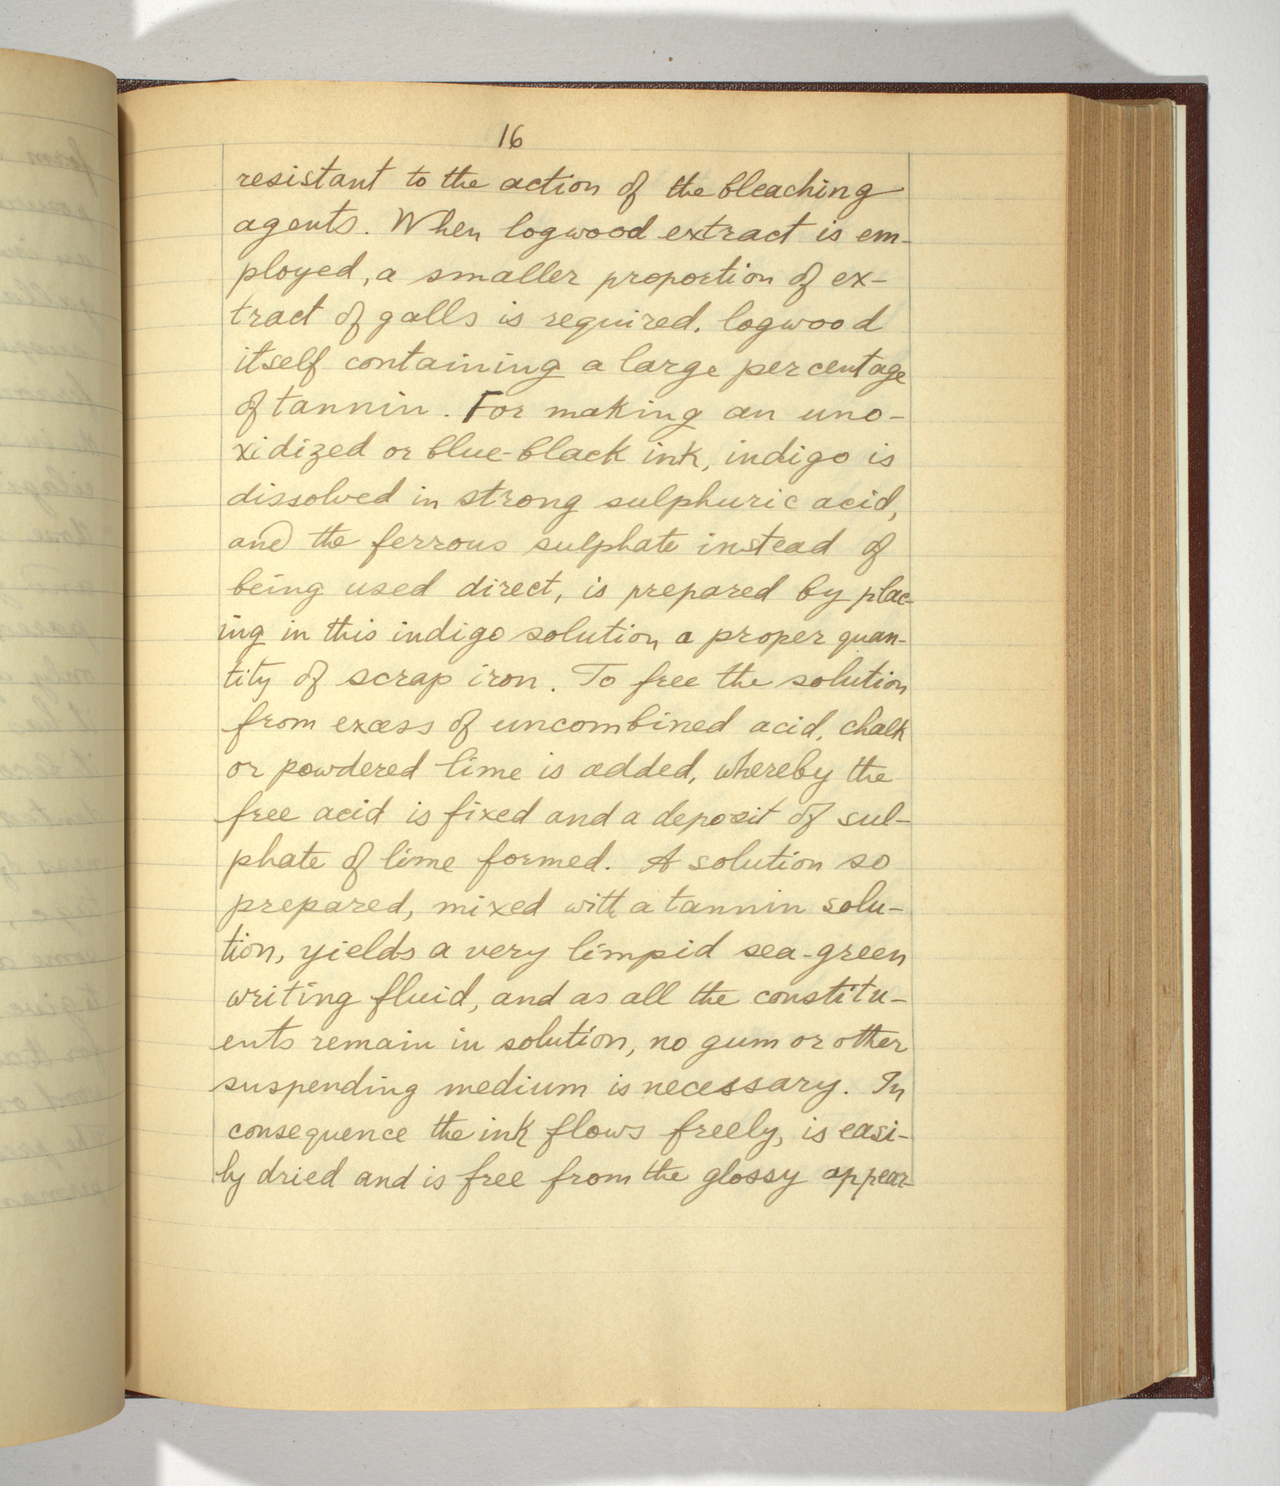 16
resistant to the action of the bleaching
agents. When logwood extract is em-
ployed, a smaller proportion of ex-
tract of galls is required, logwood
itself containing a large percentage
of tannin. For making an uno-
xidized or blue-black ink, indigo is
dissolved in strong sulphuric acid,
and the ferrous sulphate instead of
being used direct, is prepared by plac-
ing in this indigo solution a proper quan-
tity of scrap iron. To free the solution
from excess of uncombined acid, chalk
or powdered lime is added, whereby the
free acid is fixed and a deposit of sul-
phate of lime formed. A solution so
prepared, mixed with a tannin solu-
tion, yields a very limpid sea-green
writing fluid, and as all the constitu-
ents remain in solution, no gum or other
suspending medium is necessary. In
consequence the ink flows freely, is easi-
ly dried and is free from the glossy appear-